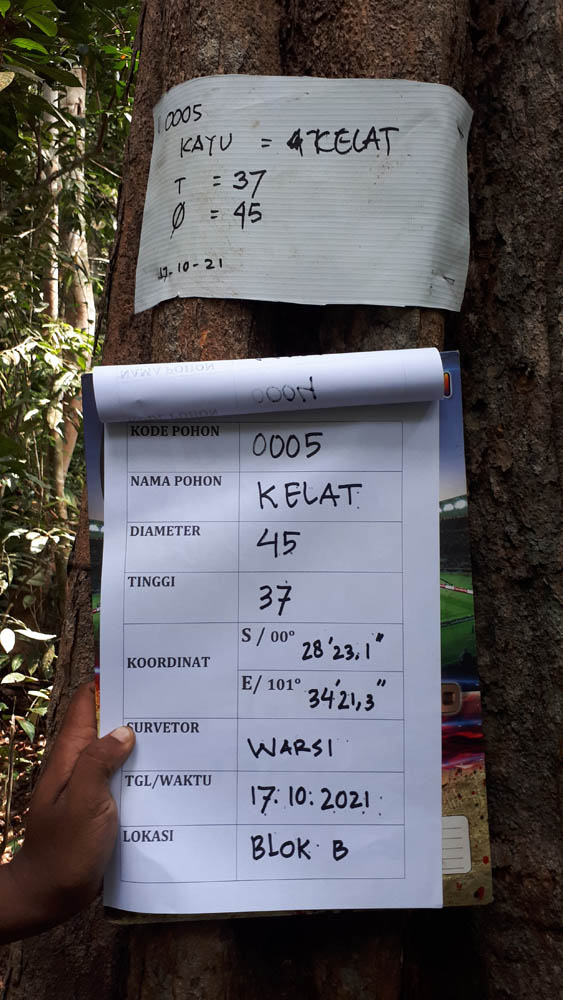 0005
KAYU = KELAT
T = 37
Ø = 45
17-10-21
NAMA POHON
KODE POHON 0005
NAMA POHON KELAT
DIAMETER 45
TINGGI 37
KOORDINAT S / 00° 28'23,1"
E/ 101° 34'21,3"
SURVETOR WARSI
TGL/WAKTU 17.10.2021
LOKASI BLOK B